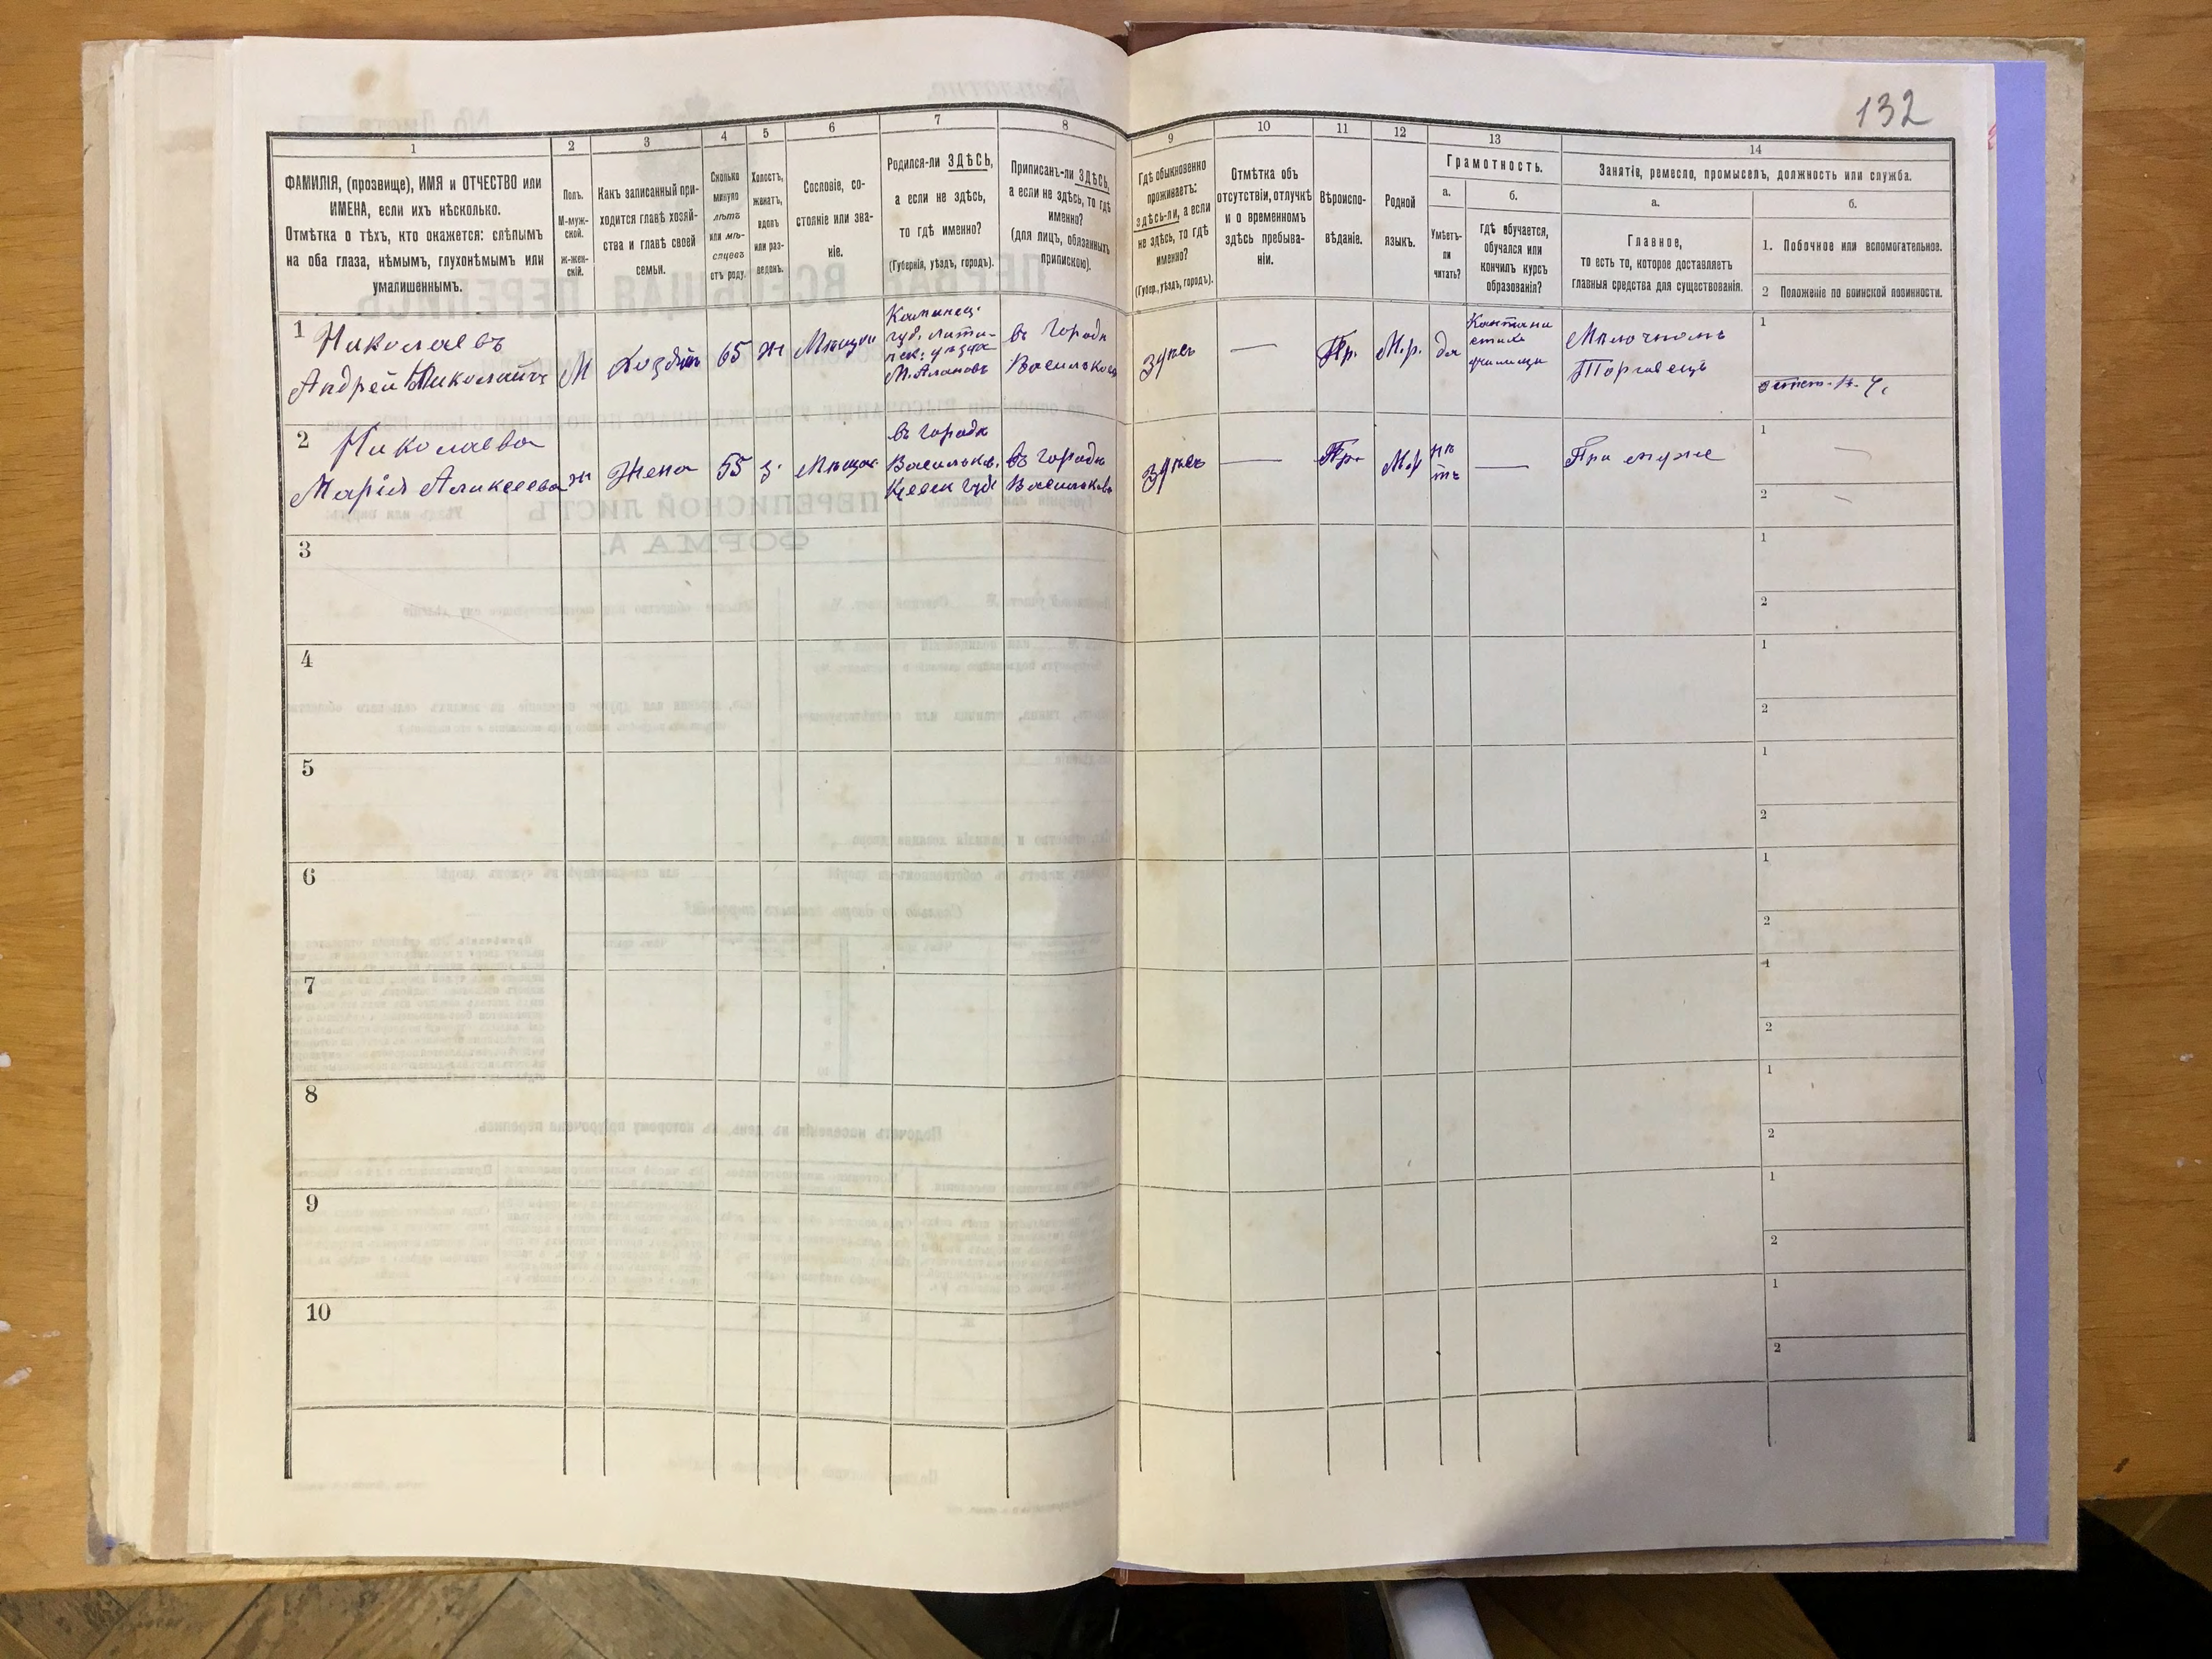 132
1
2
3
4
5
6
7
8
9
10
11
12
13
14
ФАМИЛІЯ, (прозвище), ИМЯ и ОТЧЕСТВО или
ИМЕНА, если ихъ нѣсколько.
Отмѣтка о тѣхъ, кто окажется: слѣпымъ
на оба глаза, нѣмымъ, глухонѣмымъ или
умалишеннымъ.
Полъ.
М-муж-
ской.
Ж-жен-
скій.
Какъ записанный при-
ходится главѣ хозяй-
ства и главѣ своей
семьи.
Сколько
минуло
лѣтъ
или мѣ-
сяцевъ
отъ роду.
Холостъ,
женатъ,
вдовъ
или раз-
веденъ.
Сословіе, со-
стояніе или зва-
ніе.
Родился-ли ЗДѢСЬ,
а если не здѣсь,
то гдѣ именно?
(Губернія, уѣздъ, городъ).
Приписанъ-ли ЗДѢСЬ,
а если не здѣсь, то гдѣ
именно?
(для лицъ, обязанныхъ
припискою).
Гдѣ обыкновенно
проживаетъ:
здѣсь-ли, а если
не здѣсь, то гдѣ
именно?
(Губер., уѣздъ, городъ).
Отмѣтка объ
отсутствіи, отлучкѣ
и о временномъ
здѣсь пребыва-
ніи.
Вѣроиспо-
вѣданіе.
Родной
языкъ.
Грамотность.
а.
Умѣетъ-
ли
читать?
б.
гдѣ обучается,
обучался или
кончилъ курсъ
образованія?
Занятіе, ремесло, промыселъ, должность или служба.
а.
Главное,
то есть то, которое доставляетъ
главныя средства для существованія.
б.
1. Побочное или вспомогательное.
2 Положеніе по воинской повинности.
1
Николаевъ
Андрей Николаевъ
М
Хозяинъ
65
ж
Мѣщан
губ.
въ Городѣ
Васильковѣ
Здѣсь
—
Пр.
М.р.
да
училище
Мѣлочномъ
Торговецъ
1
2
Николаева
Марія Алексеева
ж
Жена
55
з.
Мѣщан.
въ городѣ
Васильков.
Кіевск губ
въ городѣ
Васильковѣ
Здѣсь
—
Пр.
М.р
нѣ
тъ
—
При мужѣ
1
—
2
—
3
1
2
4
1
2
5
1
2
6
1
2
7
1
2
8
1
2
9
1
2
10
1
2